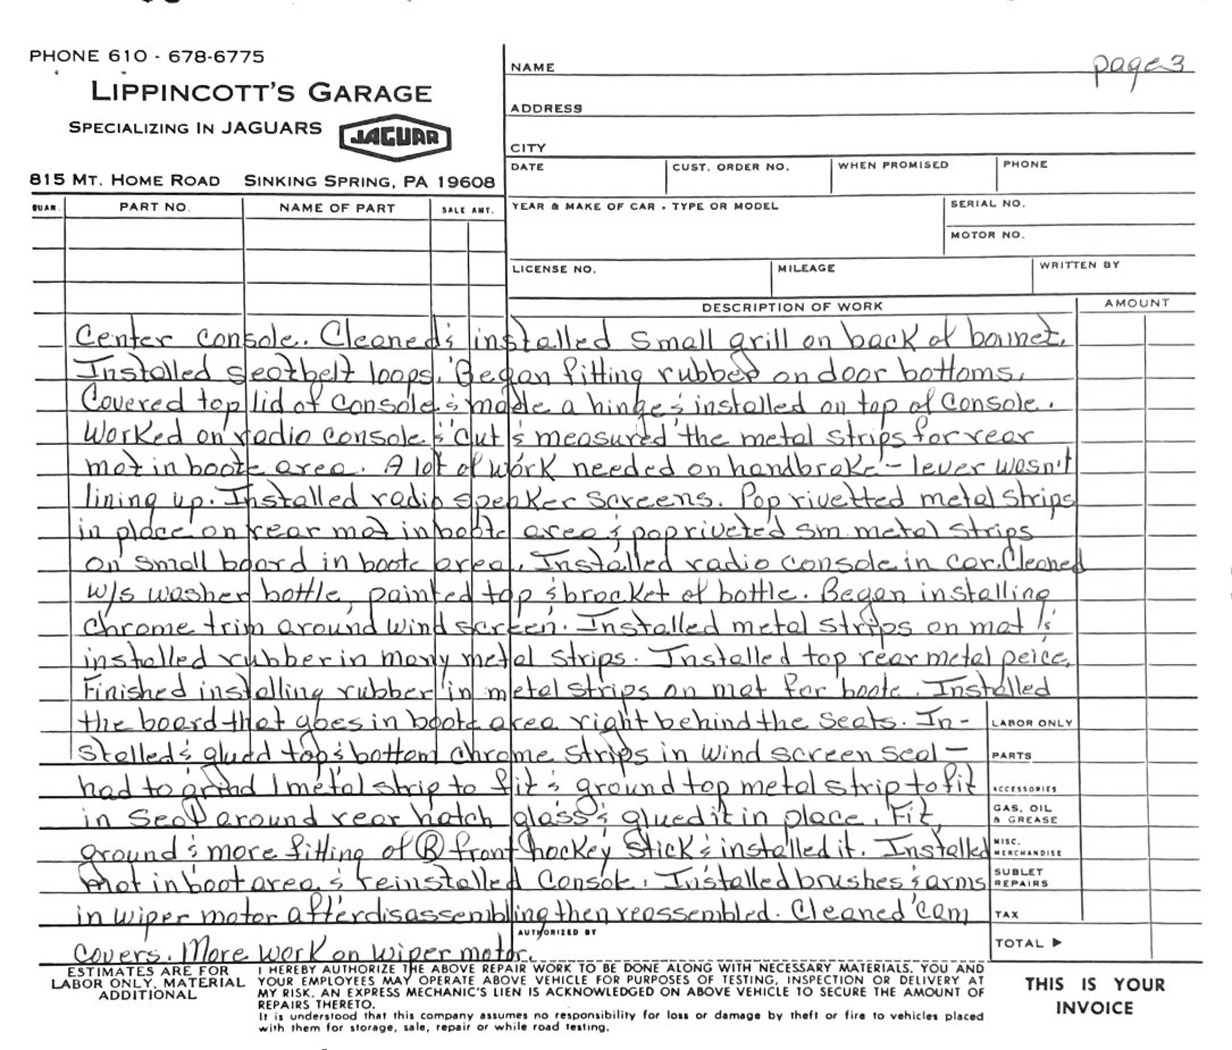 PHONE 610 - 678-6775
LIPPINCOTT'S GARAGE
SPECIALIZING IN JAGUARS
JAGUAR
815 MT. HOME ROAD SINKING SPRING, PA 19608
NAME
page 3
ADDRESS
CITY
DATE CUST. ORDER NO. WHEN PROMISED PHONE
QUAN. PART NO. NAME OF PART SALE AMT.
YEAR & MAKE OF CAR - TYPE OR MODEL SERIAL NO.
MOTOR NO.
LICENSE NO. MILEAGE WRITTEN BY
DESCRIPTION OF WORK AMOUNT
Center console. Cleaned & installed small grill on back of bonnet.
Installed seatbelt loops. Began fitting rubber on door bottoms.
Covered top lid of console & made a hinge & installed on top of console.
Worked on radio console & cut & measured the metal strips for rear
mat in boote area. A lot of work needed on handbrake - lever wasn't
lining up. Installed radio speaker screens. Pop rivetted metal strips
in place on rear mat in boote area & pop riveted sm. metal strips
on small board in boote area. Installed radio console in car. Cleaned
w/s washer bottle, painted top & bracket of bottle. Began installing
chrome trim around wind screen. Installed metal strips on mat &
installed rubber in many metal strips. Installed top rear metal peice.
Finished installing rubber in metal strips on mat for boote. Installed
the board that goes in boote area right behind the seats. In-
stalled & glued top & bottom chrome strips in wind screen seal -
had to grind 1 metal strip to fit & ground top metal strip to fit
in seal around rear hatch glass & glued it in place. Fit,
ground & more fitting of R front hockey stick & installed it. Installed
mat in boot area & reinstalled console. Installed brushes & arms
in wiper motor after disassembling then reassembled. Cleaned cam
covers. More work on wiper motor.
LABOR ONLY
PARTS
ACCESSORIES
GAS, OIL
& GREASE
MISC.
MERCHANDISE
SUBLET
REPAIRS
TAX
TOTAL ▶
AUTHORIZED BY
ESTIMATES ARE FOR
LABOR ONLY, MATERIAL
ADDITIONAL
I HEREBY AUTHORIZE THE ABOVE REPAIR WORK TO BE DONE ALONG WITH NECESSARY MATERIALS. YOU AND
YOUR EMPLOYEES MAY OPERATE ABOVE VEHICLE FOR PURPOSES OF TESTING, INSPECTION OR DELIVERY AT
MY RISK. AN EXPRESS MECHANIC'S LIEN IS ACKNOWLEDGED ON ABOVE VEHICLE TO SECURE THE AMOUNT OF
REPAIRS THERETO.
It is understood that this company assumes no responsibility for loss or damage by theft or fire to vehicles placed
with them for storage, sale, repair or while road testing.
THIS IS YOUR
INVOICE